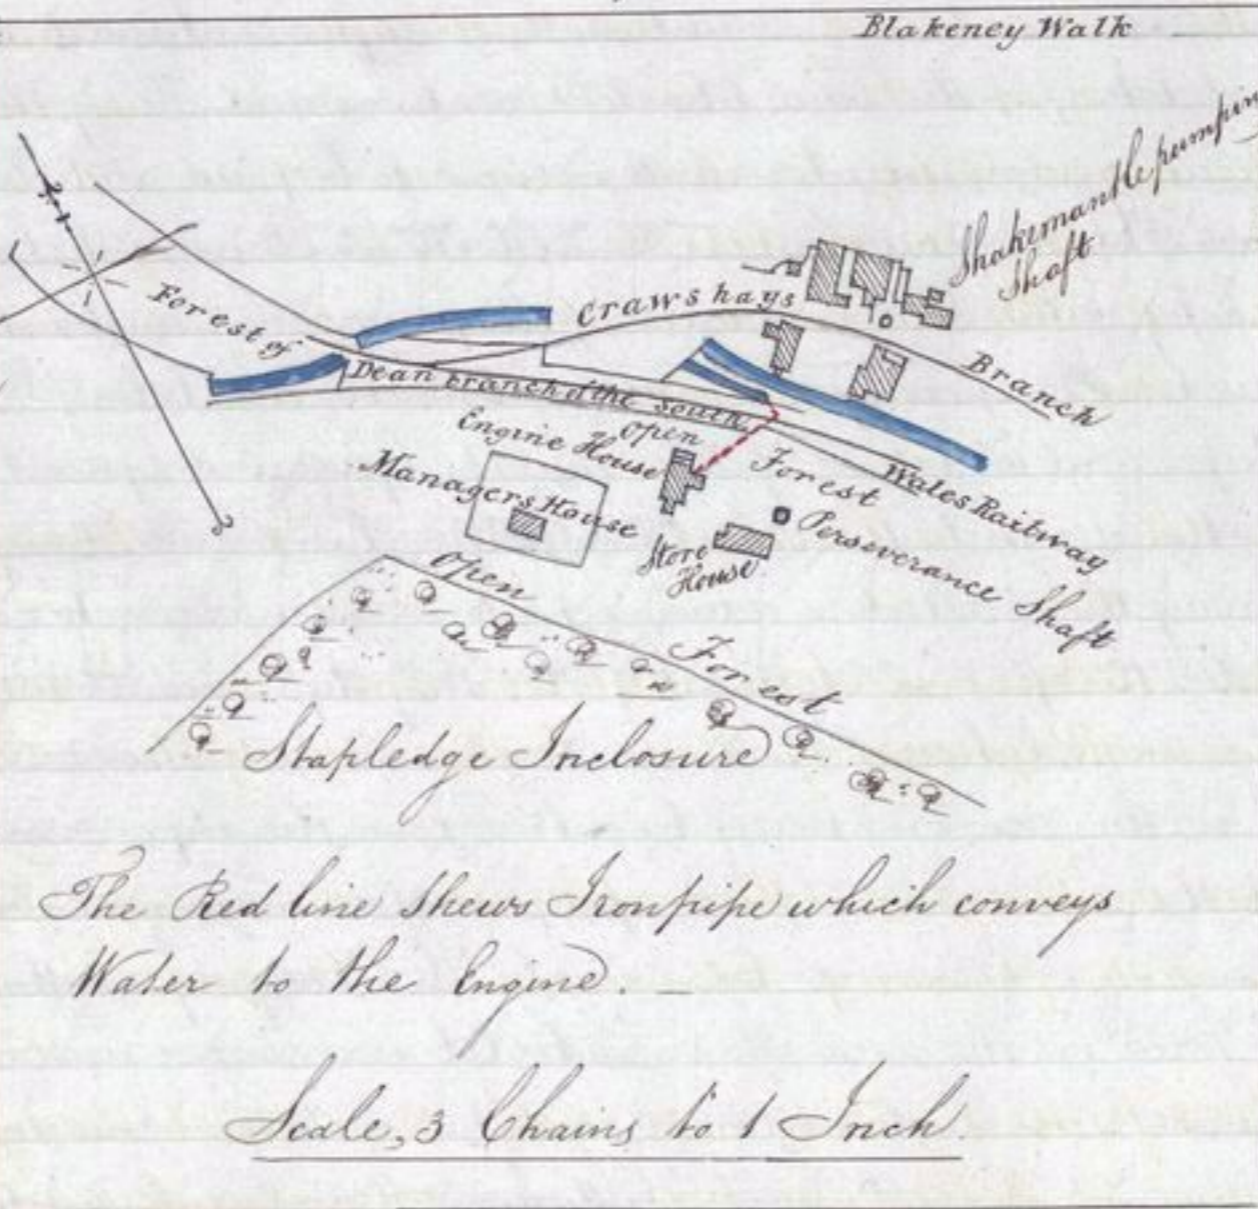 Blakeney Walk
Shakemantle pumping
Shaft
Crawshays Branch
Forest of Dean branch of the South Wales Railway
Open Forest
Engine House
Managers House
Perseverance Shaft
Store
House
Open Forest
Stapledge Inclosure
The Red line shews Ironpipe which conveys
Water to the Engine. —
Scale, 3 Chains to 1 Inch.